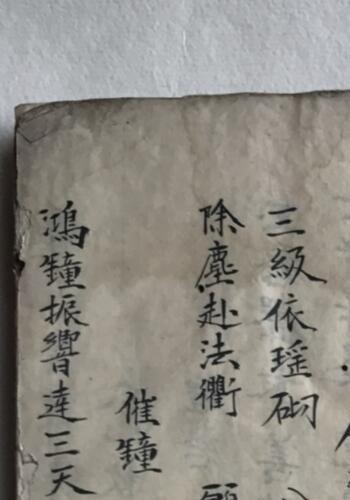 三級依瑶砌
除塵赴法衢
催鐘
鴻鐘振響達三天